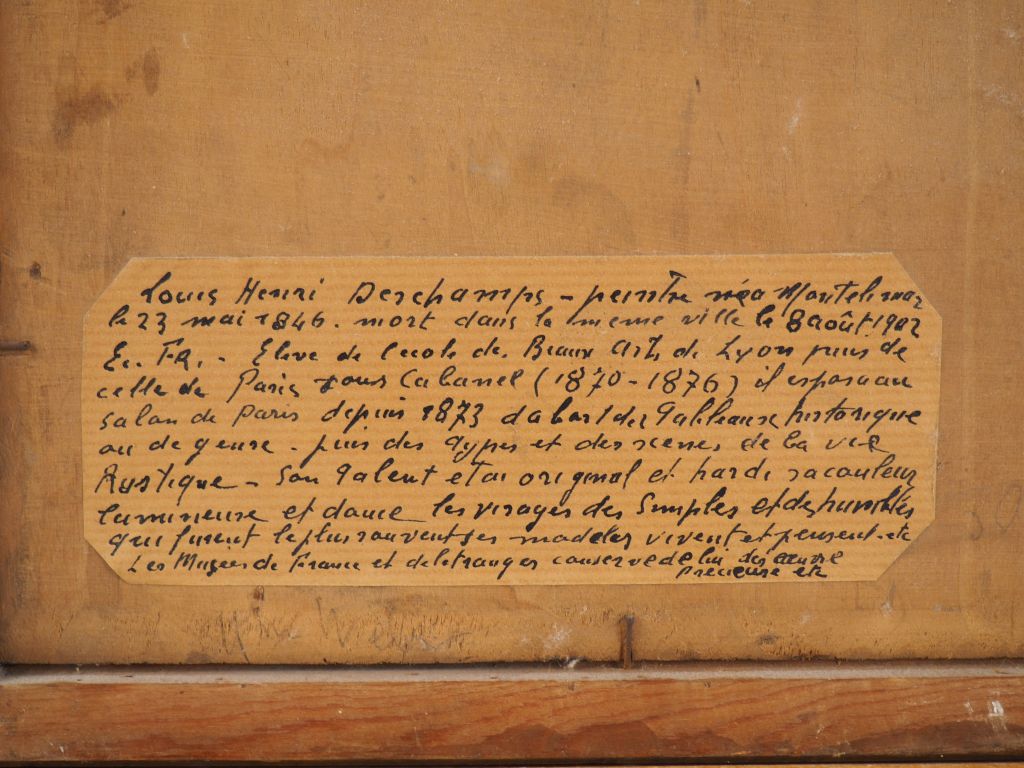 Louis Henri Deschamps - peintre né a Montelimar
le 23 mai 1846. mort dans la meme ville le 8 août 1902
Ec. FR. - Eleve de l'ecole des Beaux Arts de Lyon puis de
celle de Paris sous Cabanel (1870-1876) il exposa au
salon de Paris depuis 1873 dabord des Tableaux historique
ou de genre. puis des Types et des scenes de la vie
Rustique - Son Talent etai original et hardi sa couleur
lumineuse et douce les visages des Simples et de humbles
qui furent le plus souvent ses modèles vivent et pensent. etc
Les Musées de France et de letranger conserve de lui des œuvre
Précieuse etc